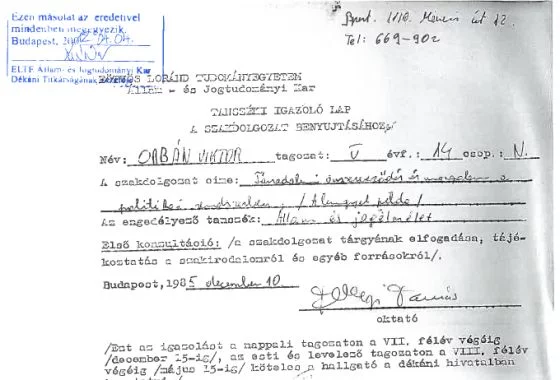 Ezen másolat az eredetivel
mindenben megegyezik.
Budapest,
ELTE Állam- és Jogtudományi Kar
Dékáni Titkárságának
Bpest. 1110. Mérei út 12.
Tel: 669-902
EÖTVÖS LORÁND TUDOMÁNYEGYETEM
ÁLLAM - és Jogtudományi Kar
TANSZÉKI IGAZOLÓ LAP
A SZAKDOLGOZAT BENYUJTÁSÁHOZ
Név: ORBÁN VIKTOR tagozat: V évf.: 14 csop.: N.
A szakdolgozat címe: Társadalmi és mozgalom a
politikai rendszerben / A lengyel példa /
Az engedélyező tanszék: Állam és jogelmélet
Első konzultáció: /a szakdolgozat tárgyának elfogadása, tájé-
koztatás a szakirodalomról és egyéb forrásokról/.
Budapest, 1985 december 10
Tamás
oktató
/Ezt az igazolást a nappali tagozaton a VII. félév végéig
/december 15-ig/, az esti és levelező tagozaton a VIII. félév
végéig /május 15-ig/ köteles a hallgató a dékáni hivatalban